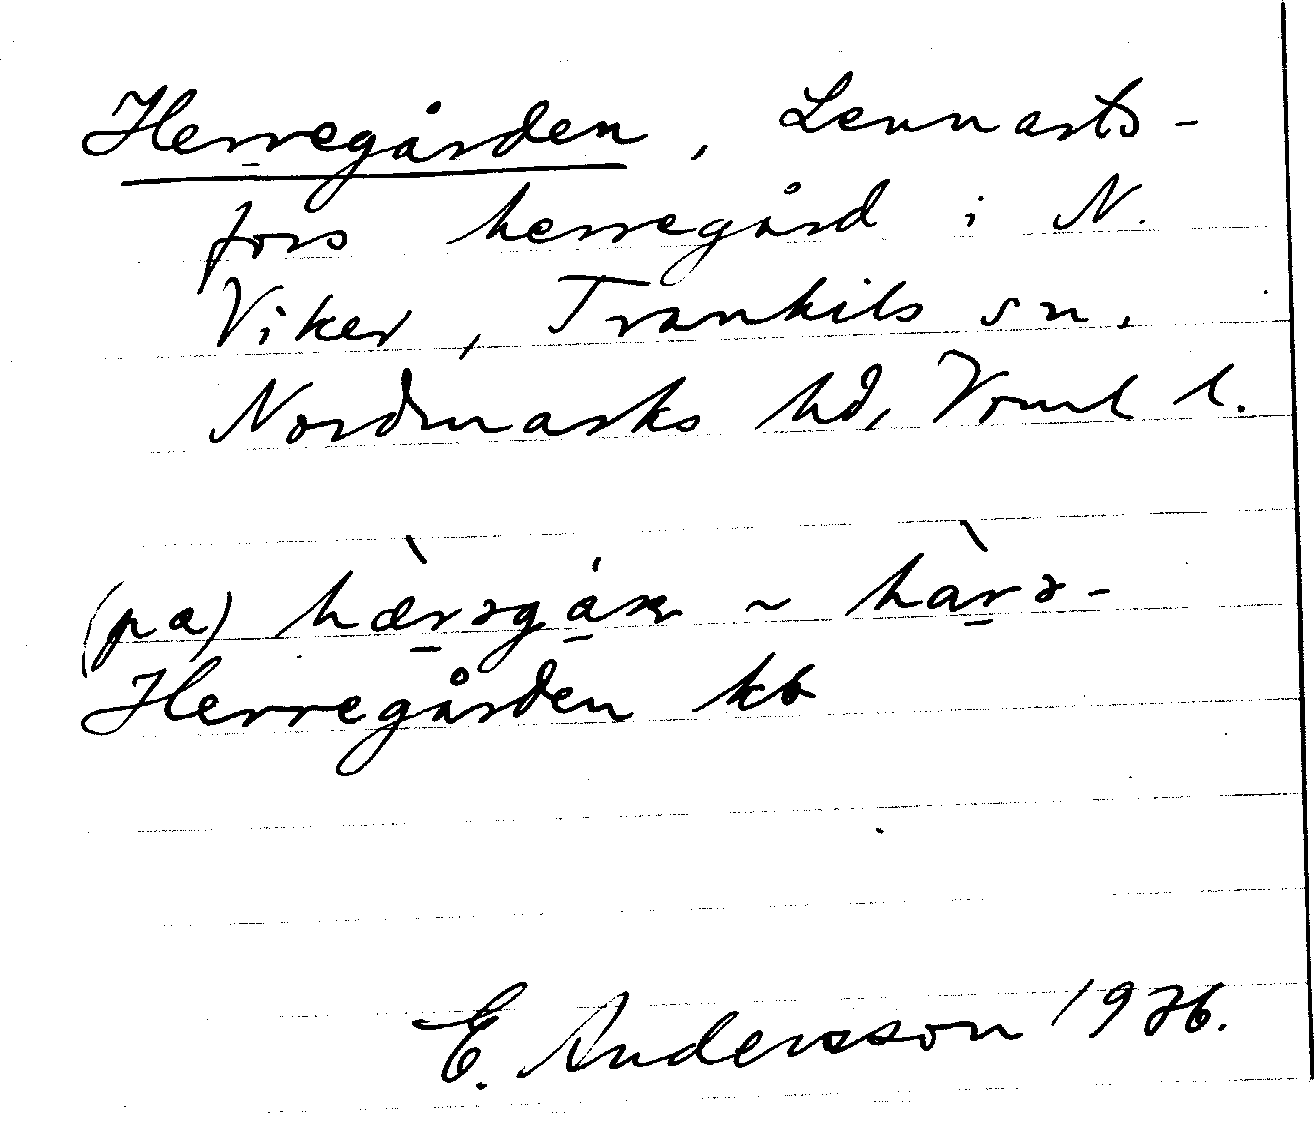 Herregården, Lennarts-
fors herregård i N.
Viker, Trankils sn.
Nordmarks hd, Vrml l.
(pa) hæ̀rəgáɴ ~ hàrə-
Herregården kb
E. Andersson 1976.